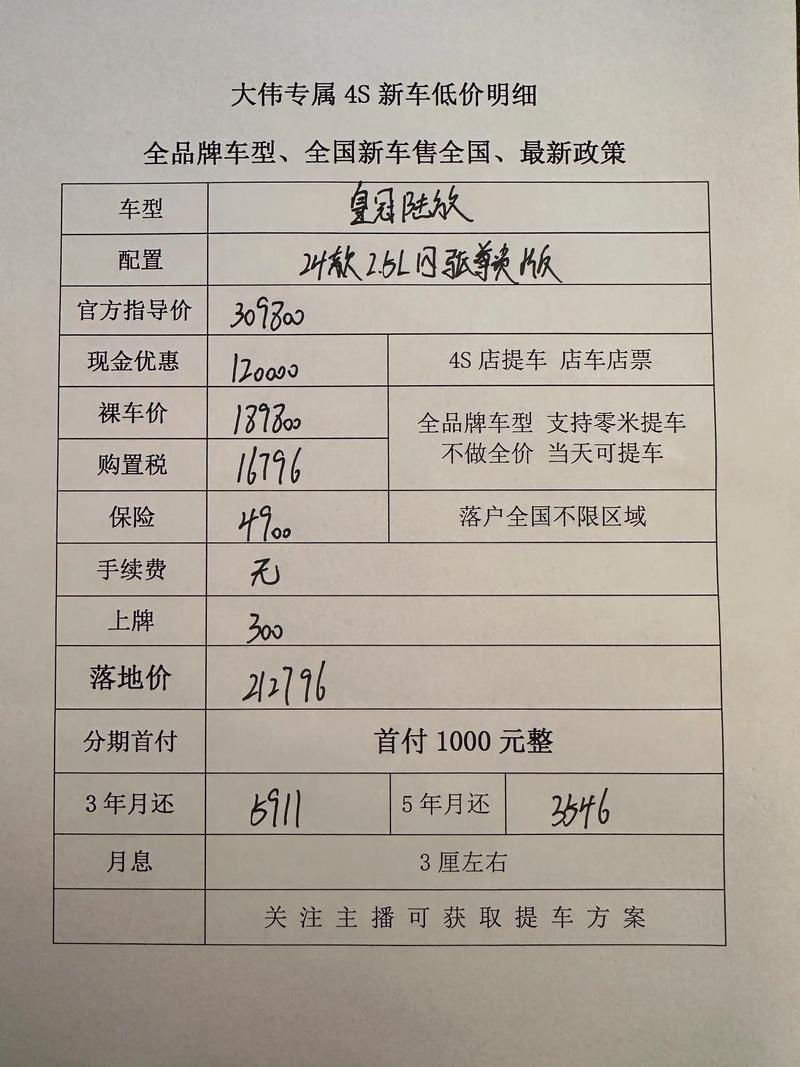 大伟专属 4S 新车低价明细
全品牌车型、全国新车售全国、最新政策
车型 皇冠陆放
配置 24款 2.5L 四驱尊贵版
官方指导价 309800
现金优惠 120000 4S 店提车 店车店票
裸车价 189800 全品牌车型 支持零米提车
购置税 16796 不做全价 当天可提车
保险 4900 落户全国不限区域
手续费 无
上牌 300
落地价 212796
分期首付 首付 1000 元整
3 年月还 5911 5 年月还 3546
月息 3 厘左右
关注主播可获取提车方案